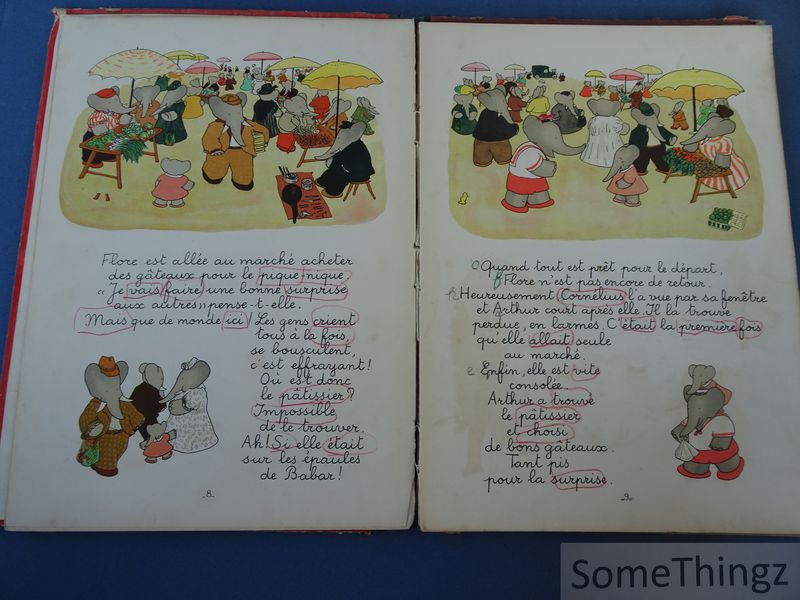 Flore est allée au marché acheter
des gâteaux pour le pique-nique.
« Je vais faire une bonne surprise
aux autres » pense-t-elle.
Mais que de monde ici! Les gens crient
tous à la fois,
se bousculent,
c'est effrayant!
Où est donc
le pâtissier?
Impossible
de le trouver.
Ah! Si elle était
sur les épaules
de Babar!
-8-
Quand tout est prêt pour le départ,
Flore n'est pas encore de retour.
Heureusement Cornélius l'a vue par sa fenêtre
et Arthur court après elle. Il la trouve
perdue, en larmes. C'était la première fois
qu'elle allait seule
au marché.
Enfin, elle est vite
consolée.
Arthur a trouvé
le pâtissier
et choisi
de bons gâteaux.
Tant pis
pour la surprise.
-9-
SomeThingz